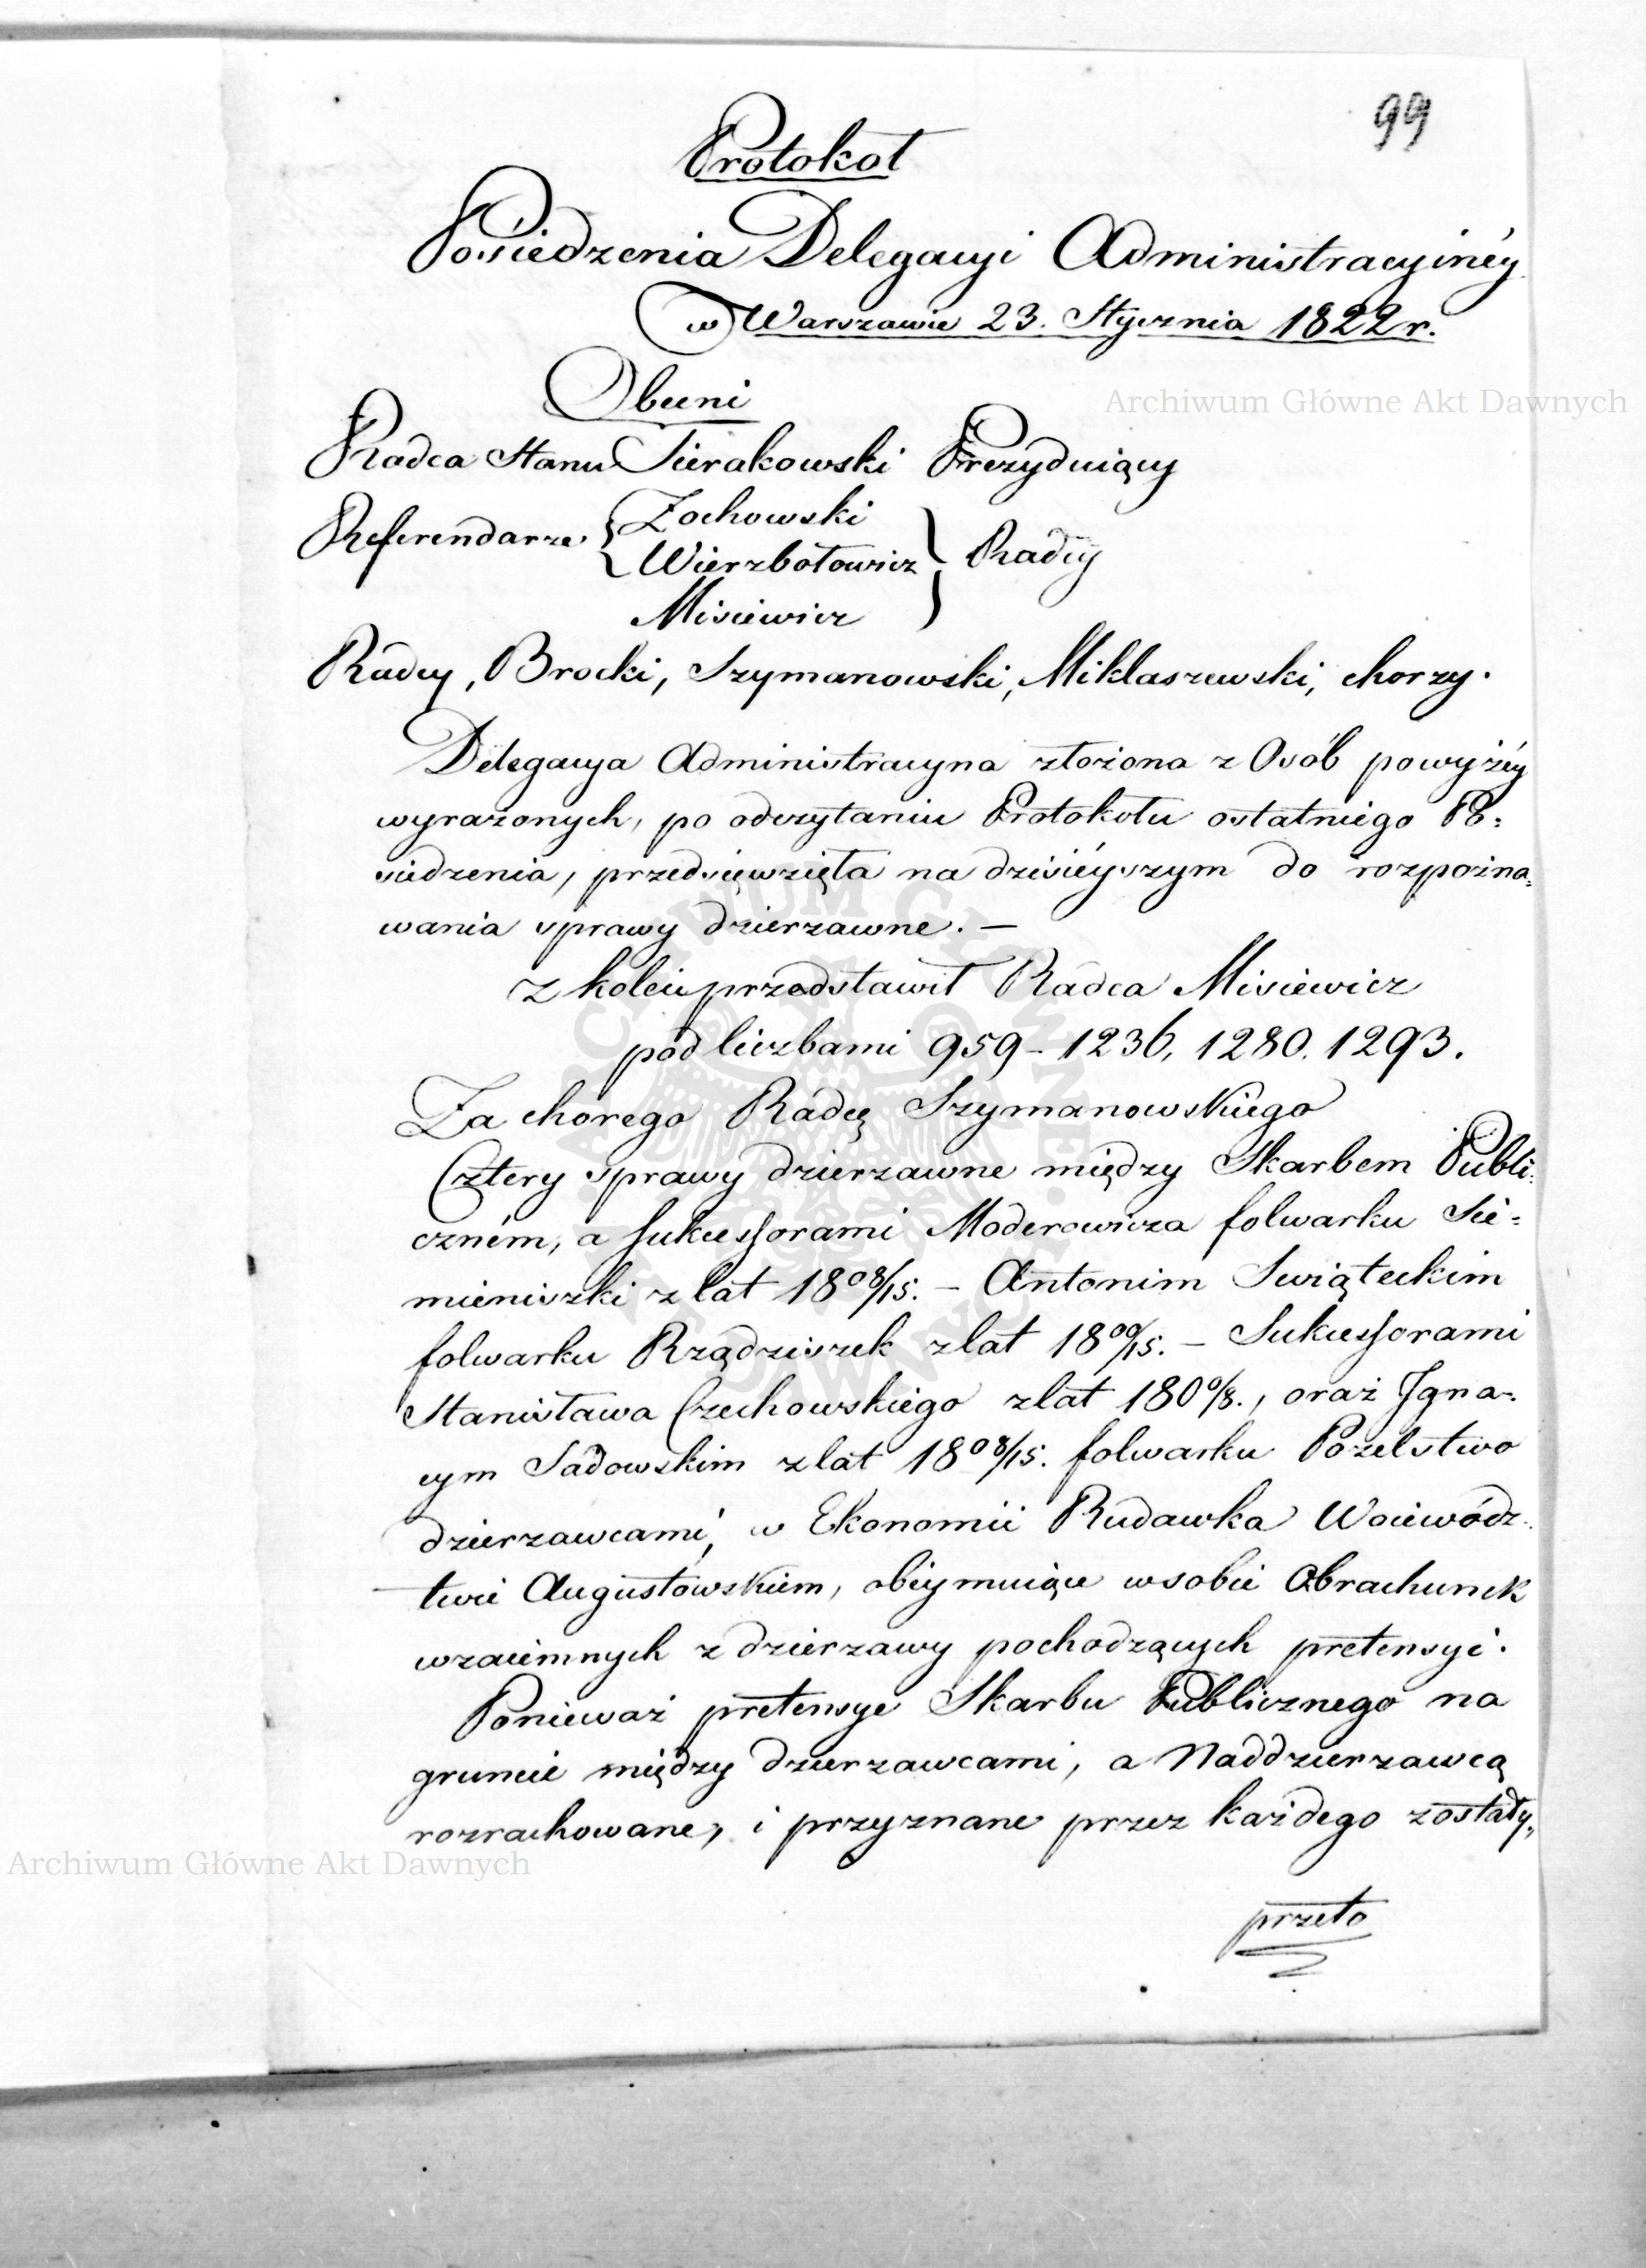 99
Protokoł
Posiedzenia Delegacyi Administracyinéy
w Warszawie 23. Stycznia 1822 r.
Obecni
Archiwum Główne Akt Dawnych
Radca Stanu Sierakowski Prezyduiący
Referendarze { Zochowski
Wierzbołowicz } Radcy
Misiewicz
Radcy, Brocki, Szymanowski, Miklaszewski, chorzy.
Delegacya Administracyna złożona z Osób powyżéy
wyrażonych, po odczytaniu Protokołu ostatniego Po=
siedzenia, przedsięwzięła na dzisiéyszym do rozpozna=
wania sprawy dzierzawne. –
z kolei przedstawił Radca Misiewicz
pod liczbami 959 – 1236, 1280. 1293.
Za chorego Radcę Szymanowskiego
Cztery sprawy dzierzawne między Skarbem Publi=
czném, a Sukcessorami Moderowicza folwarku Sie=
mieniszki z lat 1808/15. – Antonim Swiąteckim
folwarku Rządziszek z lat 1809/15. – Sukcessorami
Stanisława Czechowskiego z lat 180 0/8., oraz Igna=
cym Sadowskim z lat 1808/15. folwarku Pożelstwo
dzierzawcami, w Ekonomii Rudawka Woiewódz=
twie Augustowskiem, obeymuiące w sobie Obrachunek
wzaiemnych z dzierzawy pochodzących pretensyi.
Ponieważ pretensye Skarbu Publicznego na
gruncie między dzierzawcami, a Naddzierzawcą
rozrachowane, i przyznane przez każdego zostały,
Archiwum Główne Akt Dawnych
przeto